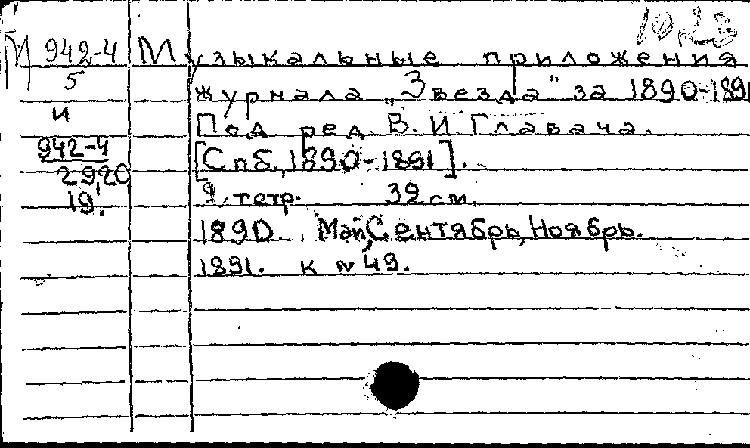 М 942-4
5
и
942-4
2920
19.
Музыкальные приложения
журнала „Звезда" за 1890-1891
Под ред. В. И. Главача.
[Спб., 1890-1891].
тетр. 39 см.
1890. Май, Сентябрь, Ноябрь.
1891. к № 49.